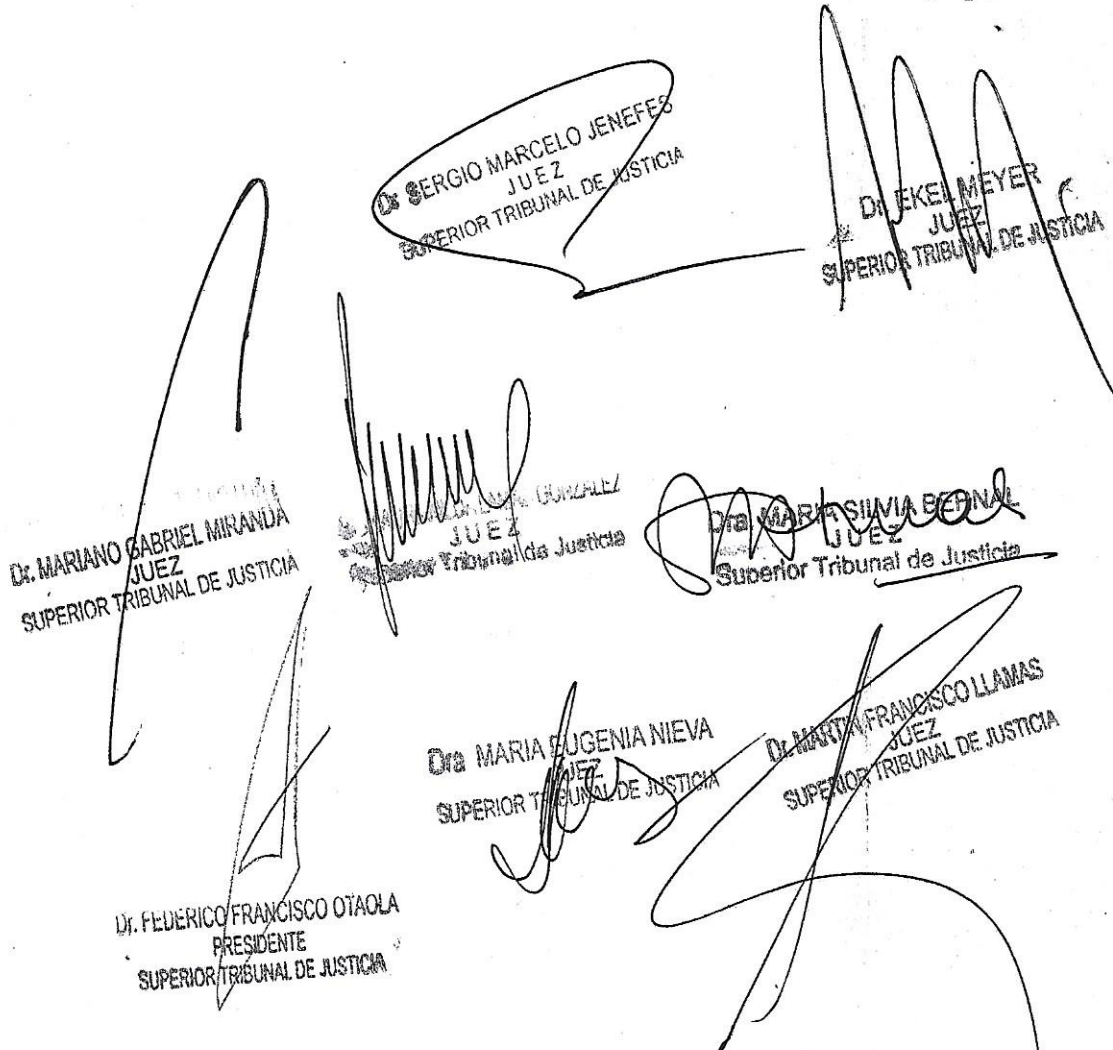 Dr. SERGIO MARCELO JENEFES
JUEZ
SUPERIOR TRIBUNAL DE JUSTICIA
Dr. EKEL MEYER
JUEZ
SUPERIOR TRIBUNAL DE JUSTICIA
Dr. MARIANO GABRIEL MIRANDA
JUEZ
SUPERIOR TRIBUNAL DE JUSTICIA
GONZALEZ
JUEZ
Superior Tribunal de Justicia
Dra. MARIA SILVIA BERNAL
JUEZ
Superior Tribunal de Justicia
Dra MARIA EUGENIA NIEVA
JUEZ
SUPERIOR TRIBUNAL DE JUSTICIA
Dr. MARTIN FRANCISCO LLAMAS
JUEZ
SUPERIOR TRIBUNAL DE JUSTICIA
Dr. FEDERICO FRANCISCO OTAOLA
PRESIDENTE
SUPERIOR TRIBUNAL DE JUSTICIA